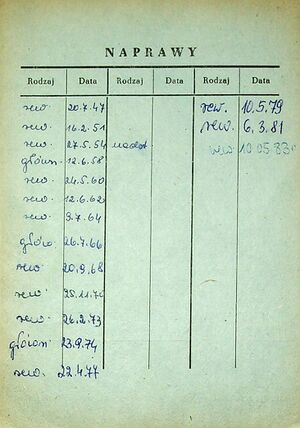 NAPRAWY
Rodzaj Data Rodzaj Data Rodzaj Data
rew. 20.7.47 rew. 10.5.79
rew. 16.2.51 rew. 6.3.81
rew. 27.5.54 rew 10 05 83
główn. 12.6.58
rew. 24.5.60
rew. 12.6.62
rew. 9.7.64
główn. 26.7.66
rew. 20.9.68
rew. 25.11.70
rew. 26.2.73
główn. 23.9.74
rew. 22.4.77